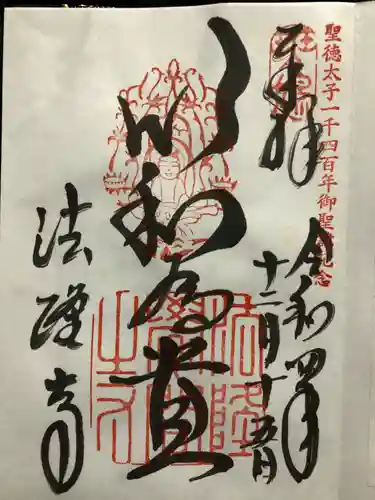 聖徳太子一千四百年御聖諱記念
奉拝
令和四年
十二月十五日
以和為貴
法隆寺
法隆
學問
寺